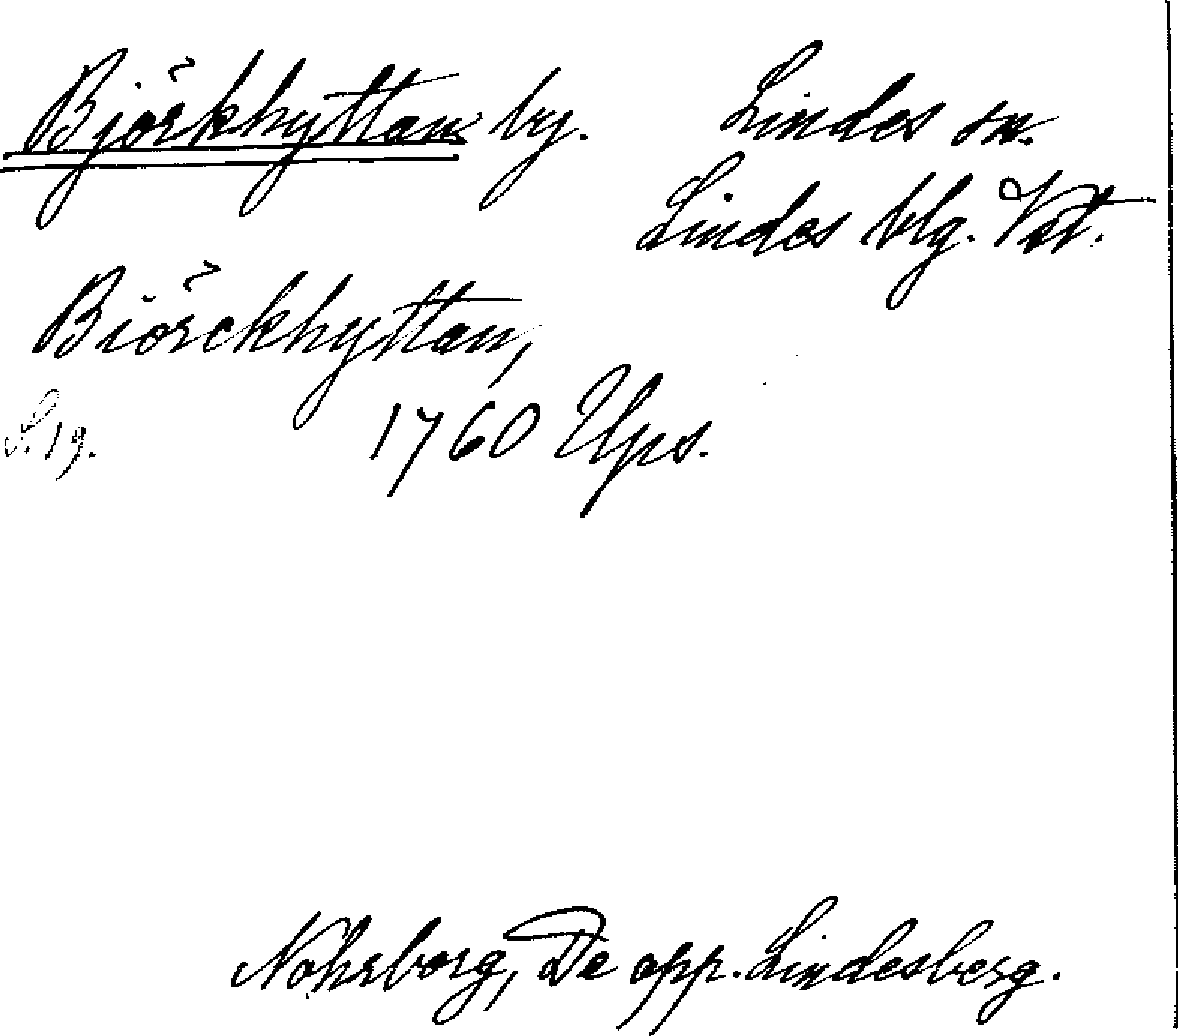 Björkhyttan by. Lindes sn.
Lindes blg. Vst.
Biörckhyttan,
S. 19. 1760 Ups.
Nohrborg, De opp. Lindesberg.